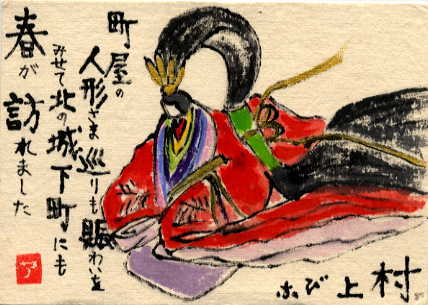 町屋の
人形さま巡りも賑わいを
みせて北の城下町にも
春が訪れました
村上びな